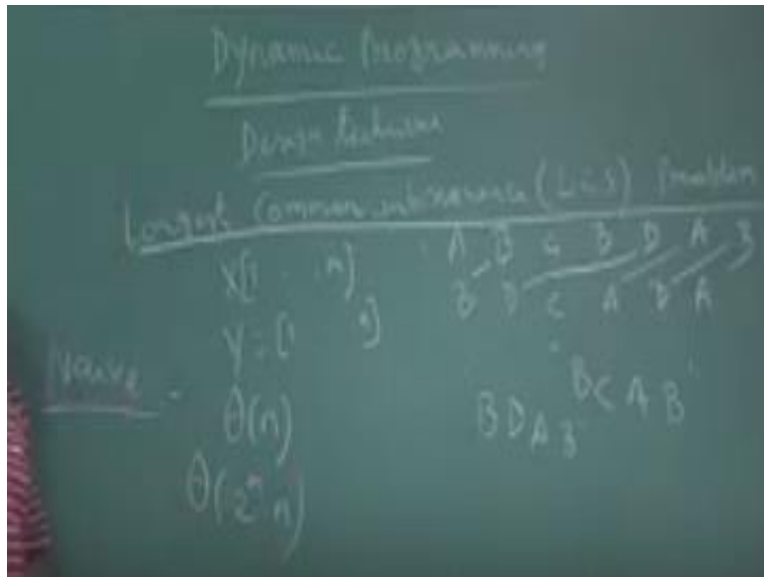 Dynamic Programming
Design technique
Longest Common subsequence (LCS) Problem
X[1 . . m] A B C B D A B
Y = [1 n] B D C A B A
Naive -
θ(n) B D A B B C A B
θ(2^m n)